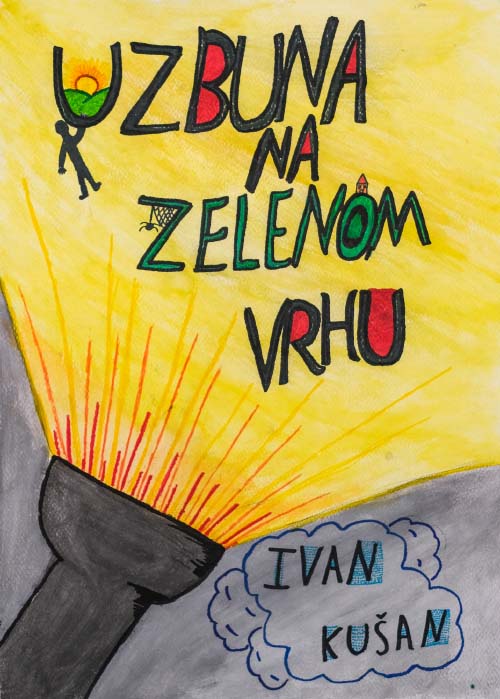 UZBUNA
NA
ZELENOM
VRHU
IVAN
KUŠAN